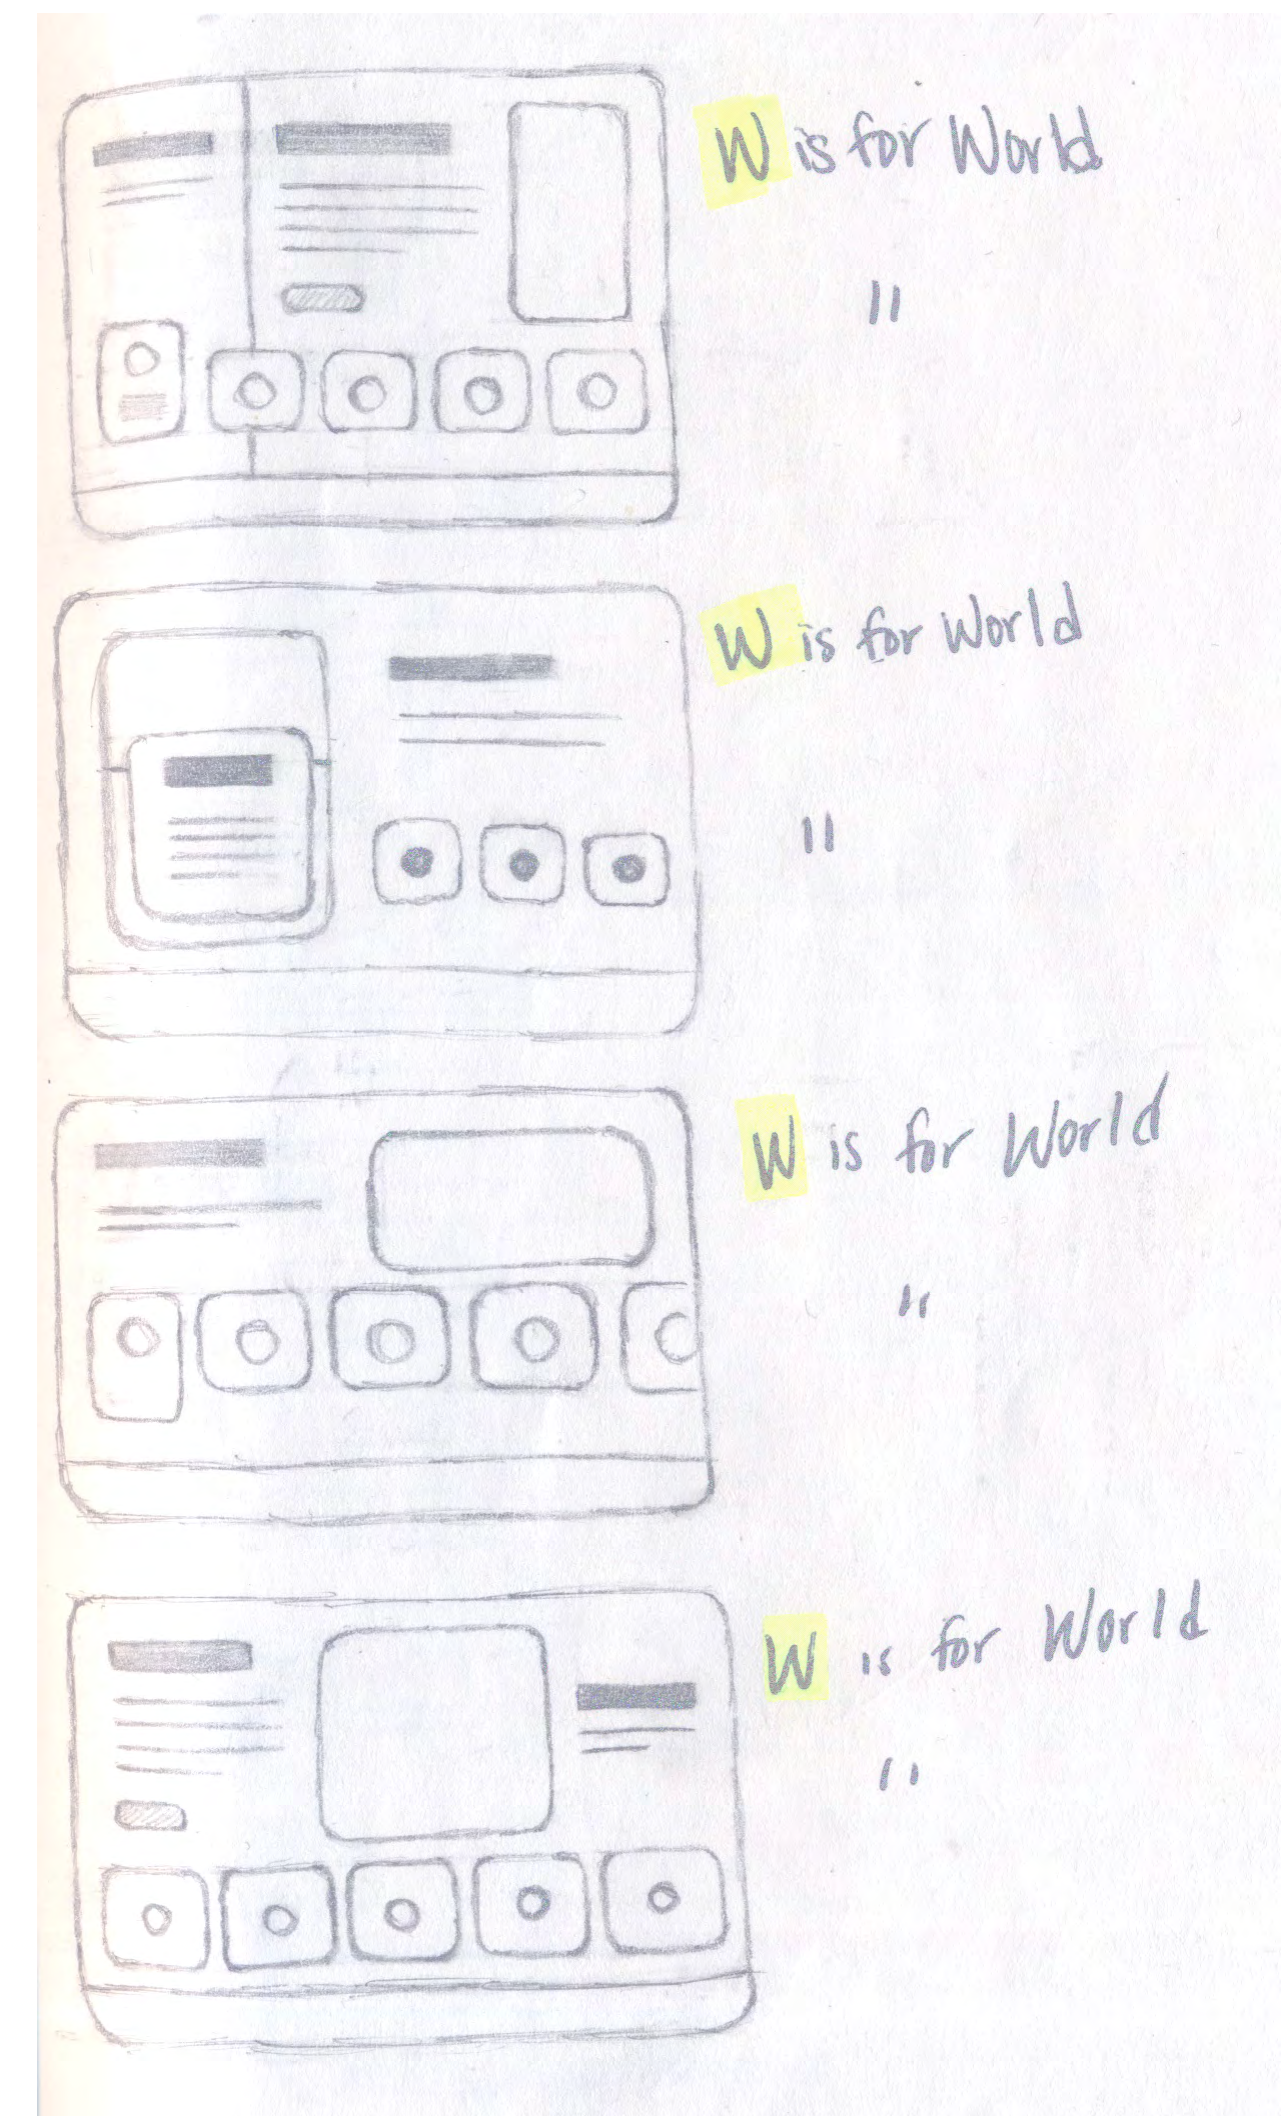 W is for World
"
W is for World
"
W is for World
"
W is for World
"